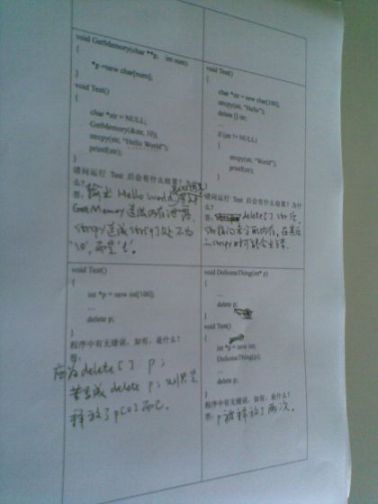 void GetMemory(char **p, int num)
{
*p = new char[num];
}
void Test()
{
char *str = NULL;
GetMemory(&str, 10);
strcpy(str, "Hello World");
printf(str);
}
请问运行 Test 后会有什么结果？为什么？
答：输出 Hello World,
GetMemory 造成内存泄露,
strcpy 造成 str[9] 处不为
'\0', 而是'l'.
void Test()
{
char *str = new char[100];
strcpy(str, "Hello");
delete [] str;
if(str != NULL)
{
strcpy(str, "World");
printf(str);
}
}
请问运行 Test 后会有什么结果？为什么？
答：delete [] str 后,
void Test()
{
int *p = new int[100];
...
delete p;
}
程序中有无错误，如有，是什么？
答：
应为 delete [] p;
若写成 delete p; 则只是
释放了 p[0] 而已.
void DoSomeThing(int* p)
{
...
delete p;
}
void Test()
{
int *p = new int;
DoSomeThing(p);
...
delete p;
}
程序中有无错误，如有，是什么？
答：p 被释放了两次.